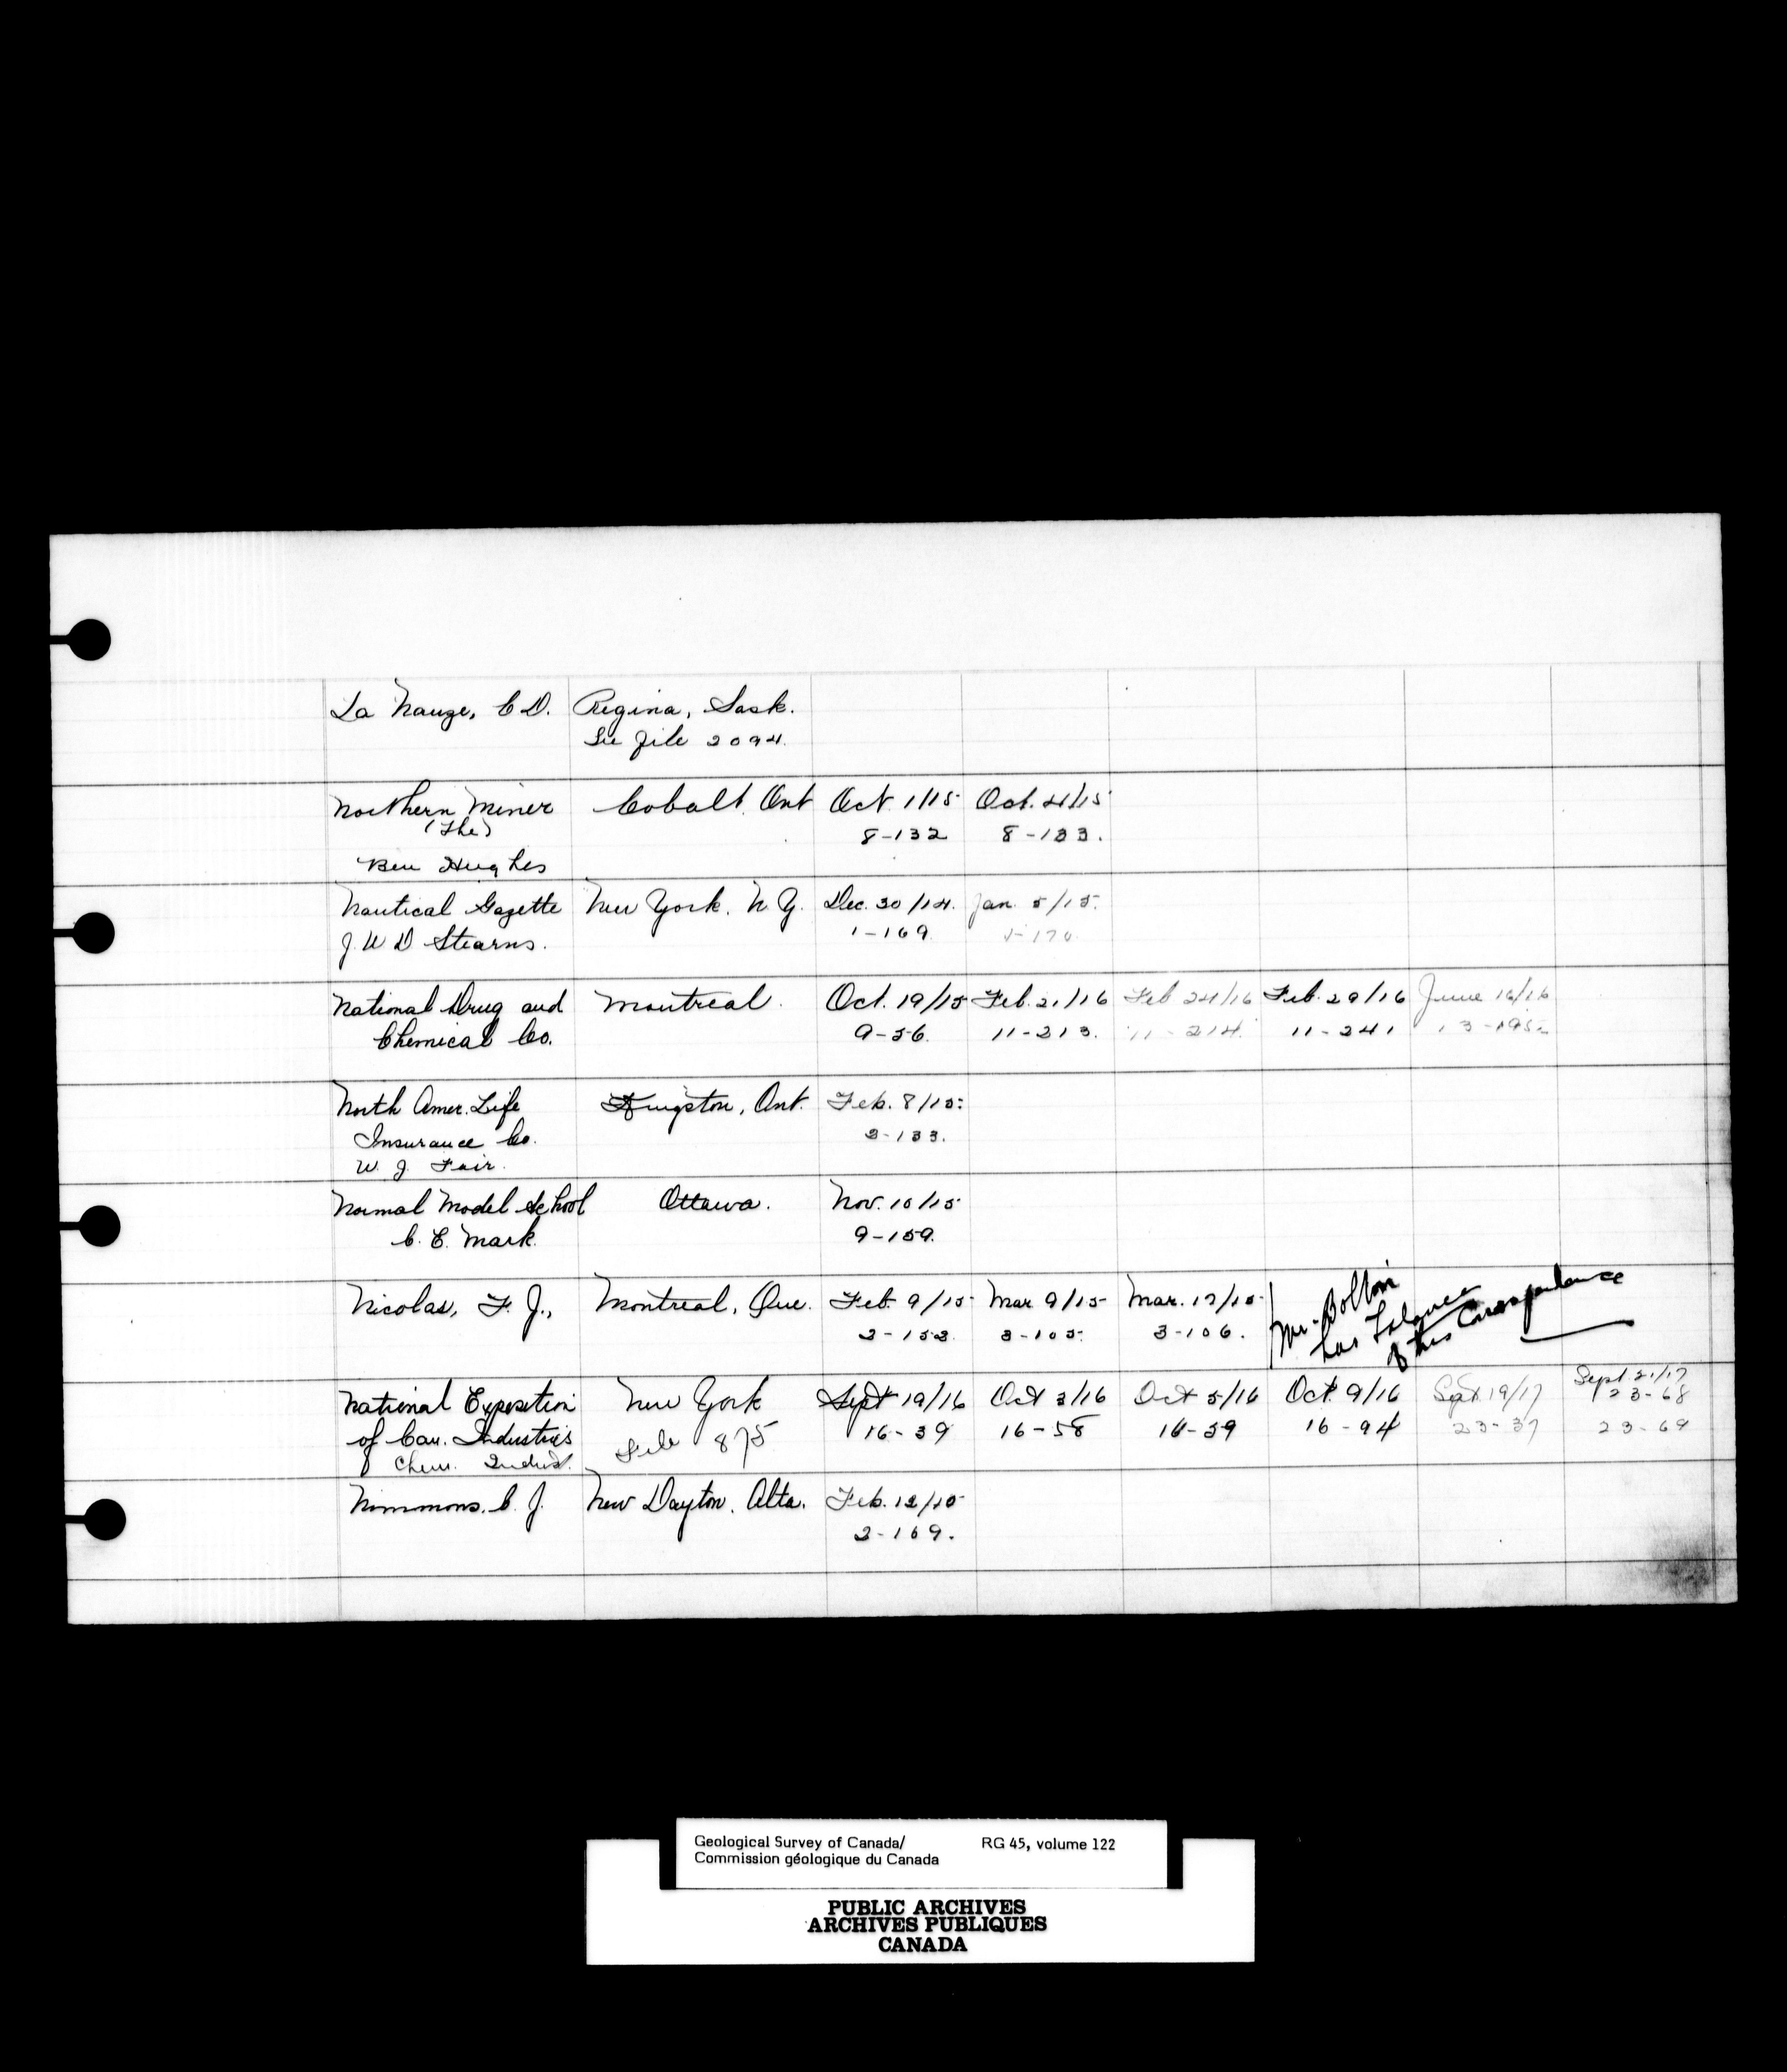 La Nauze, C D. Regina, Sask.
See file 2094.
Northern Miner Cobalt. Ont Oct. 1/15 Oct. 4/15
(The) 8-132 8-133.
Ben Hughes
Nautical Gazette New York. N Y. Dec. 30/14. Jan. 5/15.
J. W D Stearns. 1-169. 1-170.
National Drug and Montreal. Oct. 19/15 Feb. 21/16 Feb 24/16 Feb. 29/16 June 16/16
Chemical Co. 9-56. 11-213. 11-214. 11-241 13-195
North Amer. Life Kingston, Ont. Feb. 8/15.
Insurance Co. 2-133.
W. J. Fair.
Normal Model School Ottawa. Nov. 10/15
C. E. Mark. 9-159.
Nicolas, F. J., Montreal, Que. Feb. 9/15 Mar 9/15 Mar. 17/15 Mr. Bolton
2-152. 3-105. 3-106. has balance
of this Correspondence
National Exposition New York Sept 19/16 Oct 3/16 Oct 5/16 Oct. 9/16 Sept 19/17 Sept 21/17
of Can. Industries File 875 16-39 16-58 16-59 16-94 23-37 23-68
Chem. Indust. 23-69
Nimmons. C. J. New Dayton. Alta. Feb. 12/15
2-169.
Geological Survey of Canada/ RG 45, volume 122
Commission géologique du Canada
PUBLIC ARCHIVES
ARCHIVES PUBLIQUES
CANADA